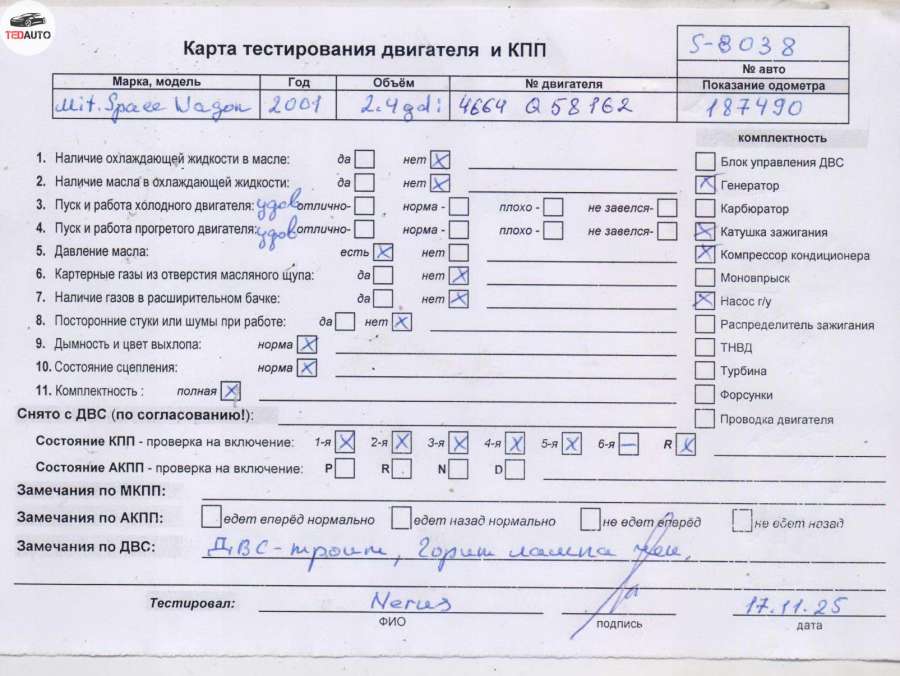 TEDAUTO
Карта тестирования двигателя и КПП
S-8038
№ авто
Марка, модель Год Объём № двигателя Показание одометра
Mit. Space Wagon 2001 2.4 gdi 4G64 Q58162 187490
комплектность
1. Наличие охлаждающей жидкости в масле: да нет X
Блок управления ДВС
2. Наличие масла в охлаждающей жидкости: да нет X
Генератор X
3. Пуск и работа холодного двигателя: удов отлично- норма - плохо - не завелся-
Карбюратор
4. Пуск и работа прогретого двигателя: удов отлично- норма - плохо - не завелся-
Катушка зажигания X
5. Давление масла: есть X нет
Компрессор кондиционера X
6. Картерные газы из отверстия масляного щупа: да нет X
Моновпрыск
7. Наличие газов в расширительном бачке: да нет X
Насос г/у X
8. Посторонние стуки или шумы при работе: да нет X
Распределитель зажигания
9. Дымность и цвет выхлопа: норма X
ТНВД
10. Состояние сцепления: норма X
Турбина
11. Комплектность : полная X
Форсунки
Снято с ДВС (по согласованию!):
Проводка двигателя
Состояние КПП - проверка на включение: 1-я X 2-я X 3-я X 4-я X 5-я X 6-я — R X
Состояние АКПП - проверка на включение: P R N D
Замечания по МКПП:
Замечания по АКПП: едет вперёд нормально едет назад нормально не едет вперёд не едет назад
Замечания по ДВС: ДВС - троит, Горит лампа чек.
Тестировал: Nerus 17.11.25
ФИО подпись дата